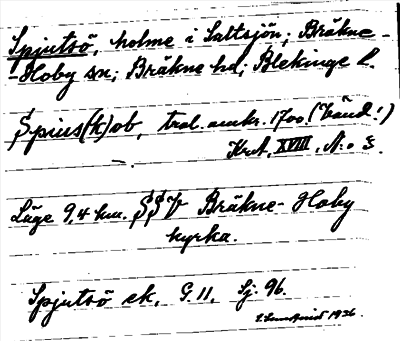 Spjutsö, holme i Saltsjön; Bräkne-
-Hoby sn; Bräkne hd; Blekinge l.
Spius(h)ob, trol. omkr. 1700. (bänd!)
KrA, XVIII, N:o 3.
Läge 9,4 km. SSV Bräkne-Hoby
kyrka.
Spjutsö ek. G. 11. Sj. 96.
1936.